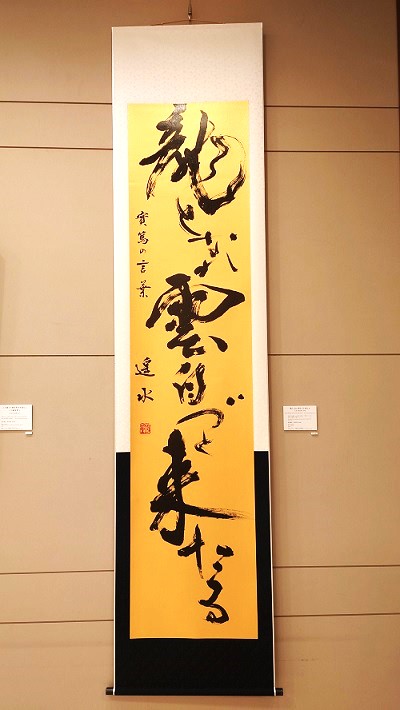 龍となれ雲自づと来たる
實篤の言葉
遥水